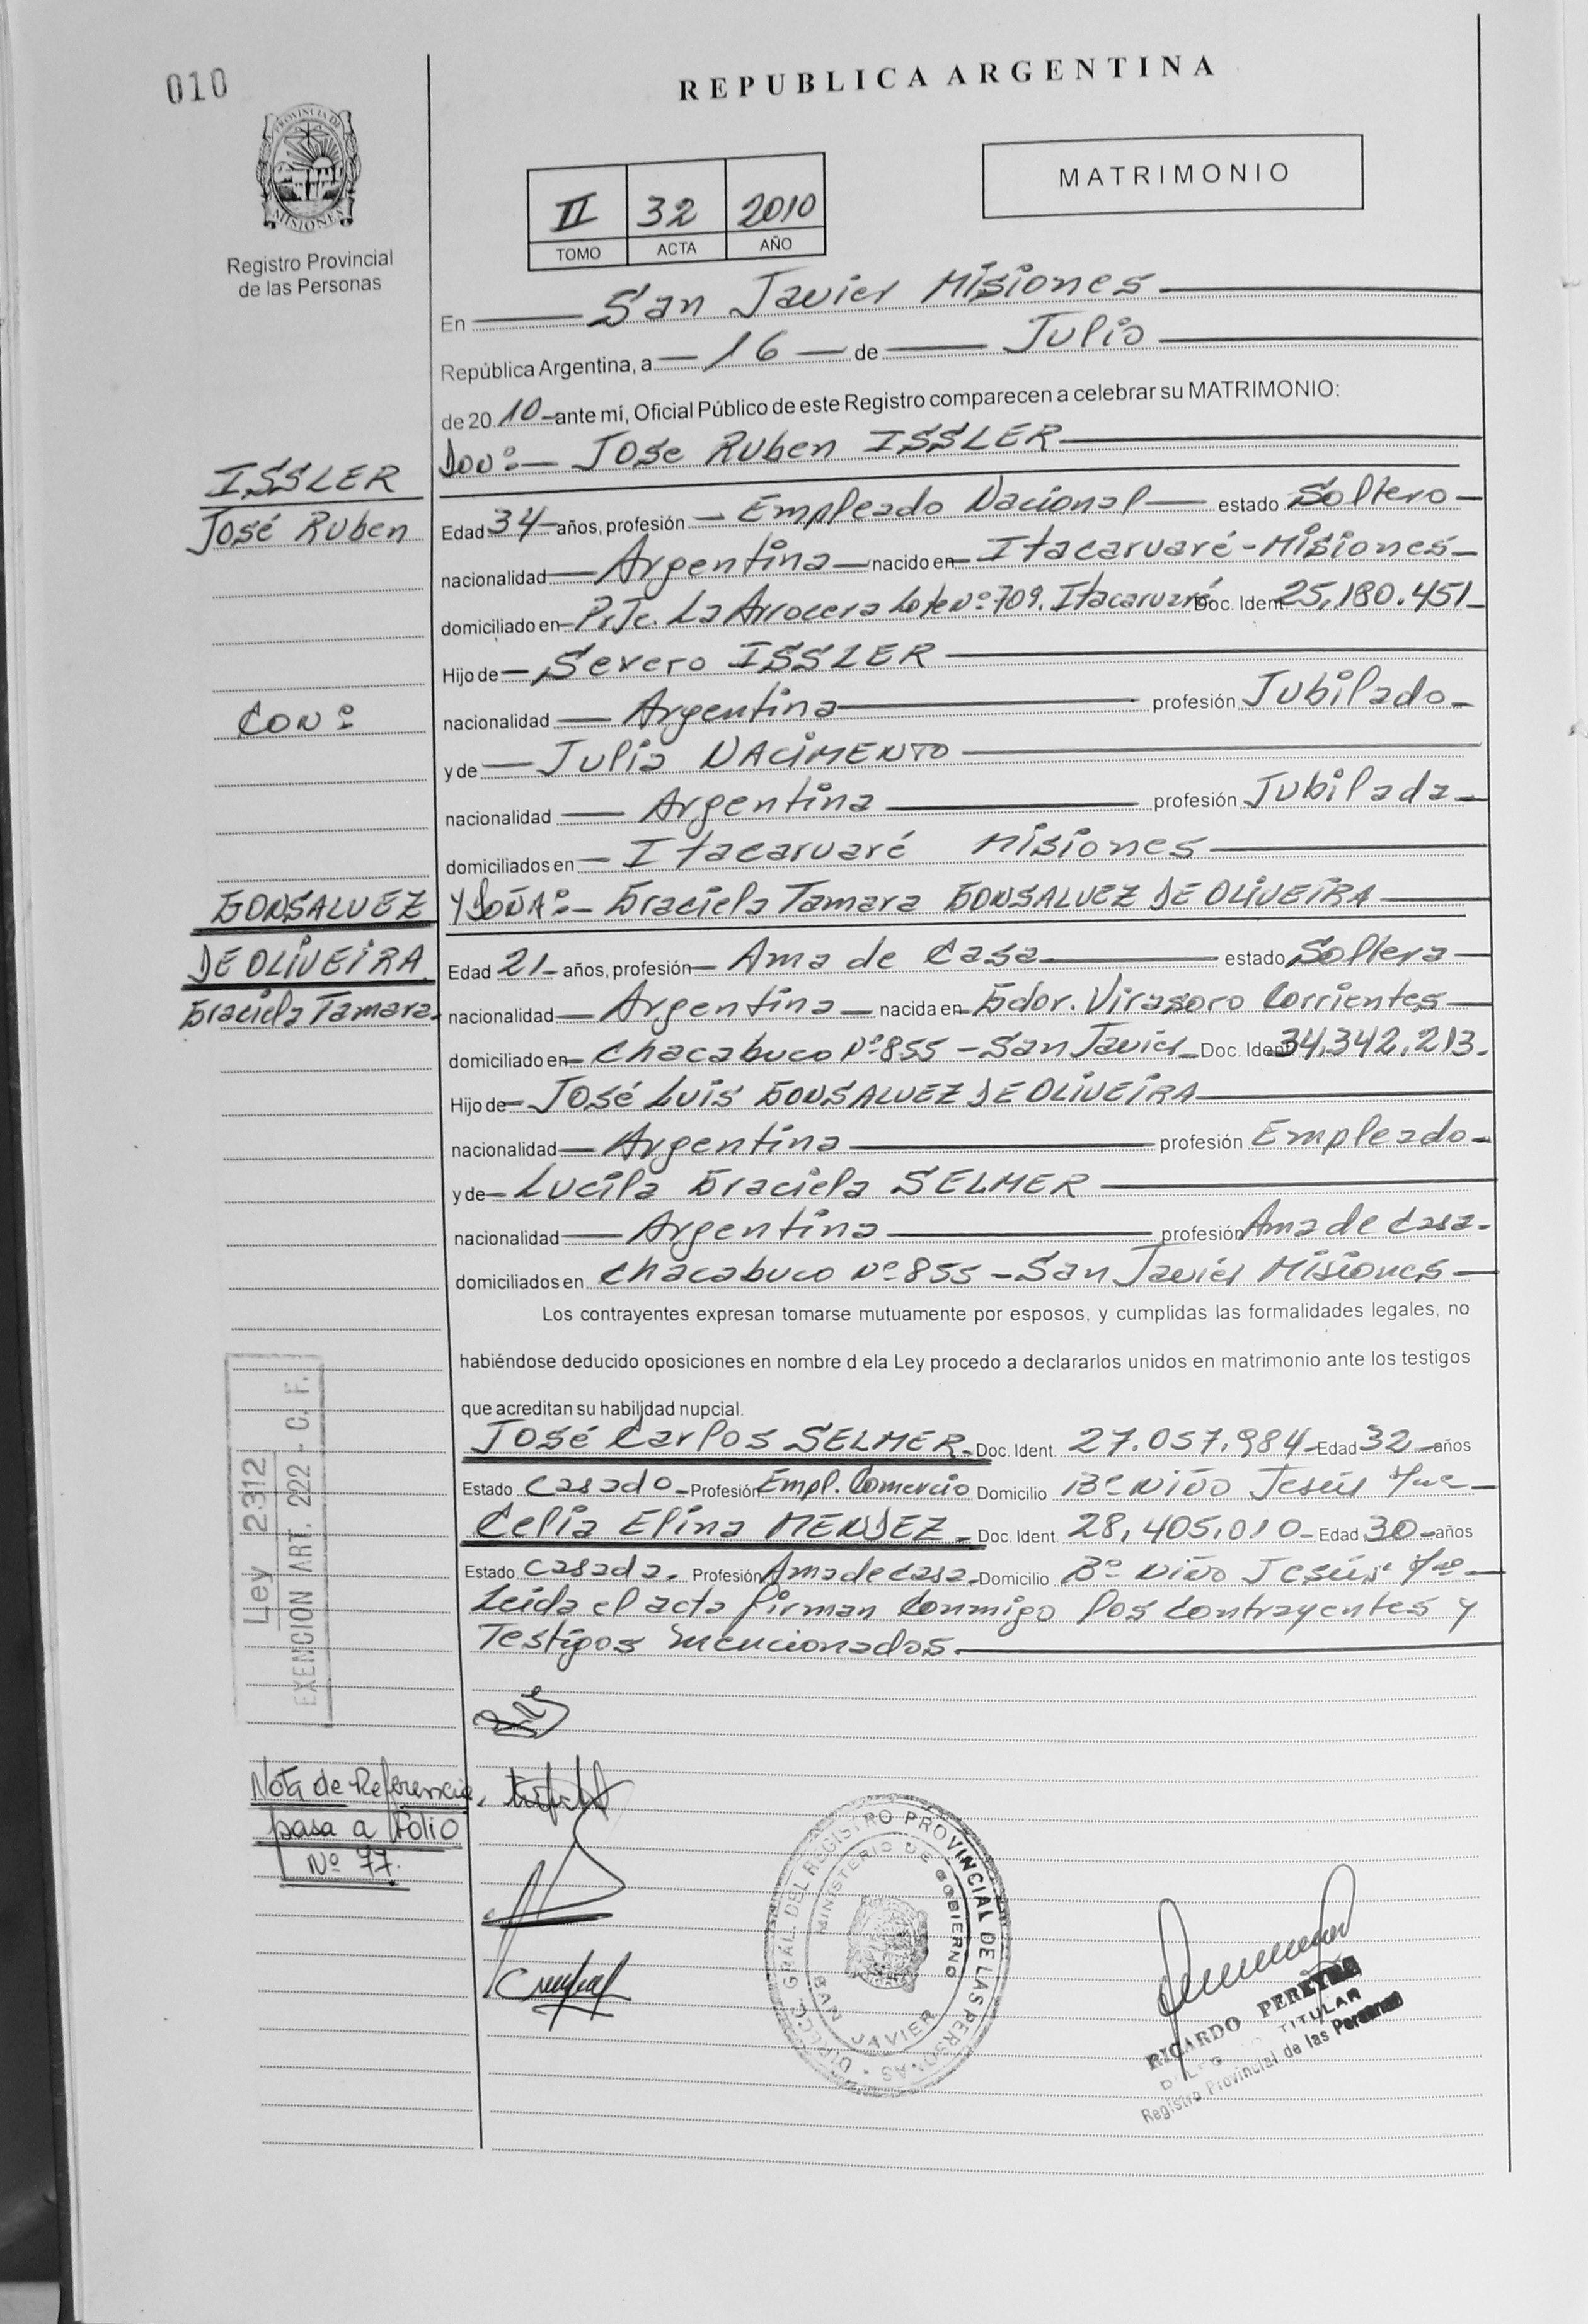 010
REPUBLICA ARGENTINA
PROVINCIA DE MISIONES
Registro Provincial
de las Personas
MATRIMONIO
II 32 2010
TOMO ACTA AÑO
En San Javier Misiones
República Argentina, a 16 de Julio
de 20 10 ante mí, Oficial Público de este Registro comparecen a celebrar su MATRIMONIO:
DON:- Jose Ruben ISSLER
ISSLER
José Ruben
Edad 34 años, profesión Empleado Nacional estado Soltero
nacionalidad Argentina nacido en Itacaruaré-Misiones
domiciliado en Pje. La Arrocera Lote Nº 709. Itacaruaré Doc. Ident. 25.180.451
Hijo de Severo ISSLER
CON:
nacionalidad Argentina profesión Jubilado
y de Julia NACIMENTO
nacionalidad Argentina profesión Jubilada
domiciliados en Itacaruaré Misiones
GONSALVEZ
DE OLIVEIRA
Graciela Tamara
Y DOÑA:- Graciela Tamara GONSALVEZ DE OLIVEIRA
Edad 21 años, profesión Ama de Casa estado Soltera
nacionalidad Argentina nacida en Gdor. Virasoro Corrientes
domiciliado en Chacabuco Nº 855 - San Javier Doc. Ident. 34.342.213.
Hijo de José Luis GONSALVEZ DE OLIVEIRA
nacionalidad Argentina profesión Empleado
y de Lucila Graciela SELMER
nacionalidad Argentina profesión Ama de Casa
domiciliados en Chacabuco Nº 855 - San Javier Misiones
Los contrayentes expresan tomarse mutuamente por esposos, y cumplidas las formalidades legales, no
habiéndose deducido oposiciones en nombre d ela Ley procedo a declararlos unidos en matrimonio ante los testigos
que acreditan su habilidad nupcial.
José Carlos SELMER Doc. Ident. 27.057.984 Edad 32 años
Estado Casado Profesión Empl. Comercio Domicilio Bº Niño Jesús
Celia Elina MENDEZ Doc. Ident. 28.405.010 Edad 30 años
Estado Casada. Profesión Ama de casa Domicilio Bº Niño Jesús
Leída el acta firman conmigo los contrayentes y
Testigos mencionados.
Ley 2312
EXENCION ART. 222 - C. F.
Nota de Referencia.
pasa a Folio
Nº 77.
DIRECC. GRAL. DEL REGISTRO PROVINCIAL DE LAS PERSONAS
MINISTERIO DE GOBIERNO
SAN JAVIER
RICARDO PEREYRA
TITULAR
Registro Provincial de las Personas